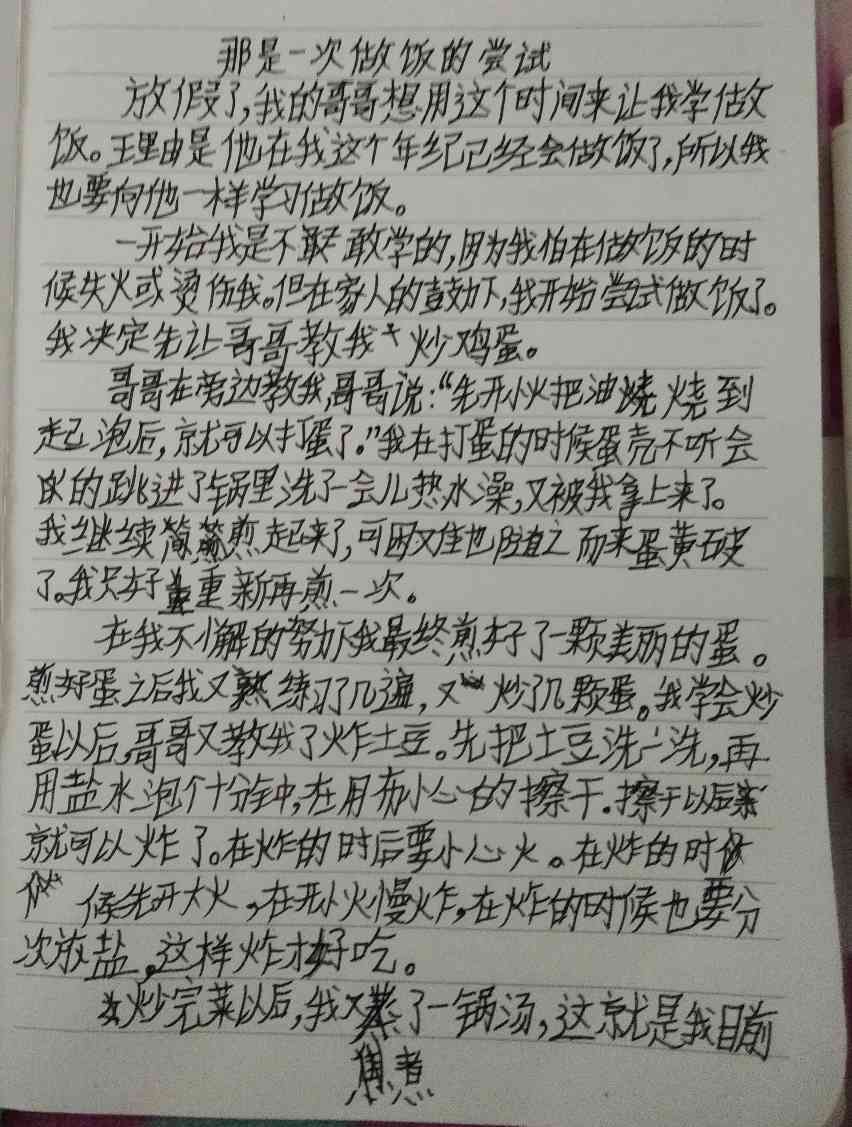 那是一次做饭的尝试
放假了,我的哥哥想用这个时间来让我学做
饭。理由是他在我这个年纪已经会做饭了,所以我
也要向他一样学习做饭。
一开始我是不敢学的,因为我怕在做饭的时
候失火或烫伤我。但在家人的鼓励下,我开始尝试做饭了。
我决定先让哥哥教我炒鸡蛋。
哥哥在旁边教我,哥哥说:“先开小火把油烧到
起泡后,就可以打蛋了。”我在打蛋的时候蛋壳不听会
的跳进了锅里洗了一会儿热水澡,又被我拿上来了。
我继续煎起来了,可困难也随之而来蛋黄破
了。我只好重新再煎一次。
在我不懈的努力下我最终煎好了一颗美丽的蛋。
煎好蛋之后我又练习了几遍,又炒了几颗蛋。我学会炒
蛋以后,哥哥又教我了炸土豆。先把土豆洗一洗,再
用盐水泡个十分钟,在用布小心的擦干.擦干以后
就可以炸了。在炸的时后要小心火。在炸的时
候先开大火,在开小火慢炸,在炸的时候也要分
次放盐,这样炸才好吃。
炒完菜以后,我又了一锅汤,这就是我目前
煮